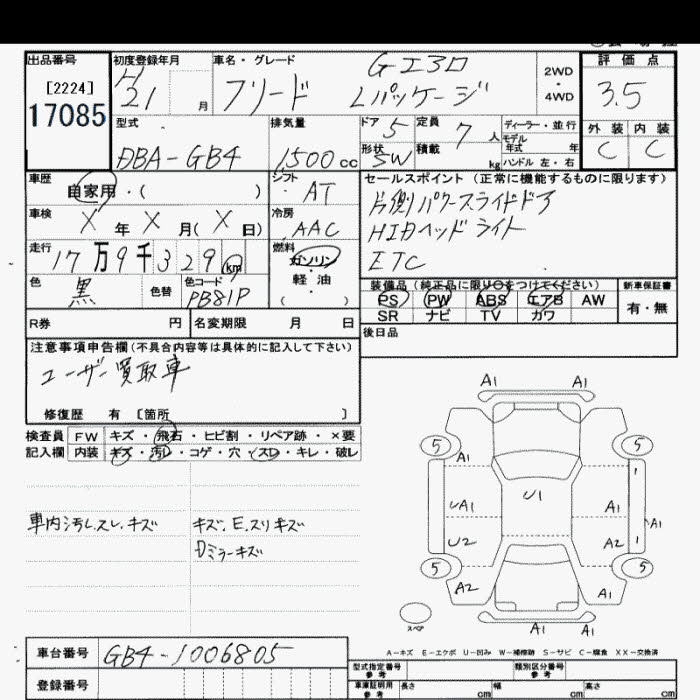 出品番号 初度登録年月 車名・グレード Gエアロ 2WD ・ 4WD 評価点
[2224] H21 月 フリード Lパッケージ 3.5
17085 型式 排気量 ドア 5 定員 7 人 ディーラー・並行 外装 内装
モデル
DBA-GB4 1500 cc 形状 SW 積載 kg 年式 年 C C
ハンドル 左・右
車歴 自家用・( ) シフト AT セールスポイント (正常に機能するものに限ります)
片側パワースライドドア
車検 X 年 X 月( X 日) 冷房 AAC HIDヘッドライト
走行 17 万 9 千 3 2 9 km 燃料 ガソリン・軽油・( ) ETC
色 黒 色替 色コード PB81P 装備品 (純正品に限り○をつけてください) 新車保証書
PS PW ABS エアB AW 有・無
SR ナビ TV カワ
R券 円 名変期限 月 日 後日品
注意事項申告欄 (不具合内容等は具体的に記入して下さい)
ユーザー買取車
修復歴 有 [箇所 ]
検査員 FW キズ・飛石・ヒビ割・リペア跡・×要
記入欄 内装 キズ・汚レ・コゲ・穴・スレ・キレ・破レ
車内汚レ、スレ、キズ キズ、E、スリキズ
Dミラーキズ
A1 A1
5 5
A1
UA1 U1 A1 A1
U2 A2
5 5
A2 A1
スペア A1 A1
A-キズ E-エクボ U-凹み W-補修跡 S-サビ C-腐食 XX-交換済
車台番号 GB4-1006805 型式指定番号 参考 類別区分番号 参考
登録番号 車庫証明用 参考 長さ cm 幅 cm 高さ cm